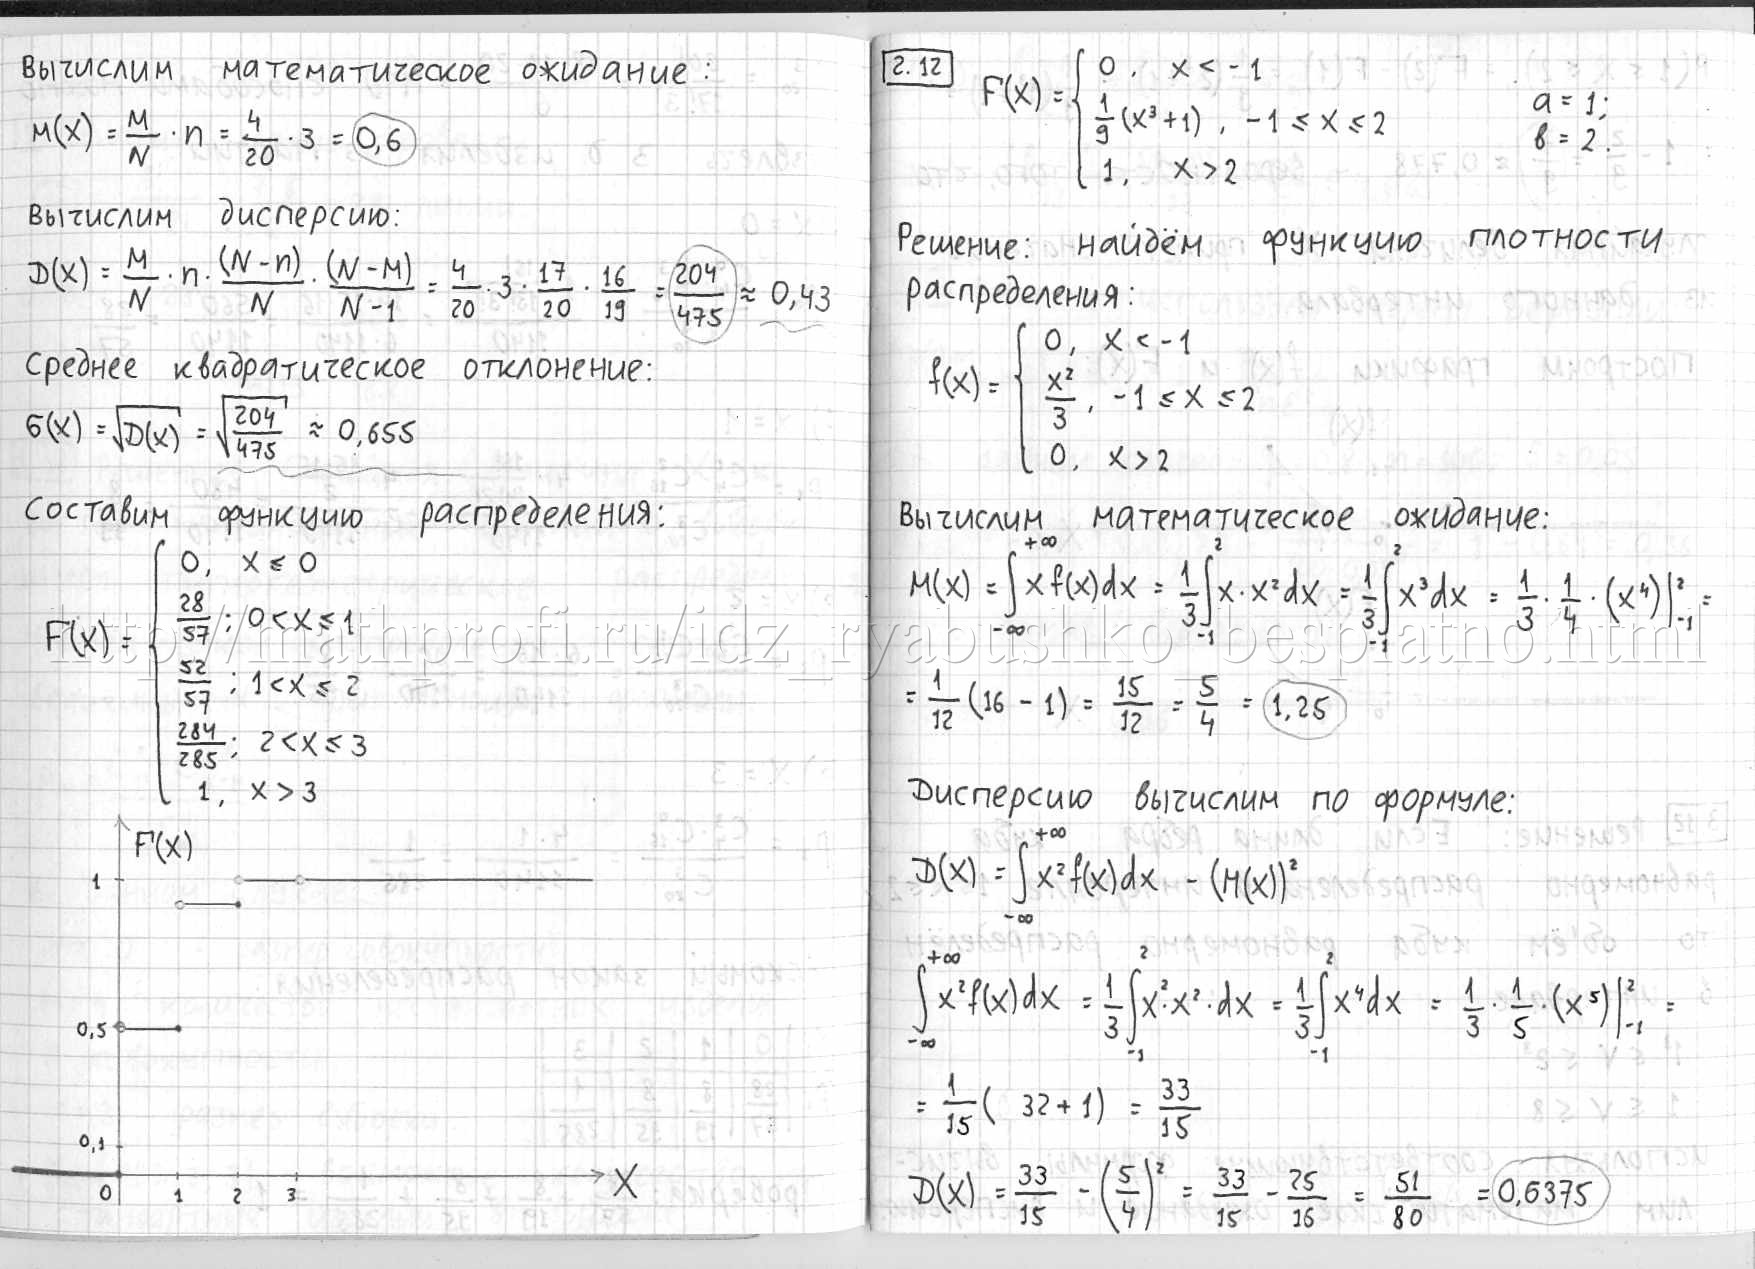 Вычислим математическое ожидание:
M(X) = M/N · n = 4/20 · 3 = 0,6
Вычислим дисперсию:
D(X) = M/N · n · (N-n)/N · (N-M)/(N-1) = 4/20 · 3 · 17/20 · 16/19 = 204/475 ≈ 0,43
Среднее квадратическое отклонение:
б(X) = √D(X) = √204/475 ≈ 0,655
Составим функцию распределения:
F(X) = { 0, X ≤ 0
28/57; 0 < X ≤ 1
52/57; 1 < X ≤ 2
284/285; 2 < X ≤ 3
1, X > 3
F(X)
1
0,5
0,1
0 1 2 3 X
2.12
F(X) = { 0, X < -1
1/9 (X³+1), -1 ≤ X ≤ 2
1, X > 2
a = 1;
в = 2.
Решение: найдём функцию плотности
распределения:
f(X) = { 0, X < -1
X²/3, -1 ≤ X ≤ 2
0, X > 2
Вычислим математическое ожидание:
M(X) = ∫_{-∞}^{+∞} X f(X) dX = 1/3 ∫_{-1}^{2} X · X² dX = 1/3 ∫_{-1}^{2} X³ dX = 1/3 · 1/4 · (X⁴)|_{-1}^{2} =
= 1/12 (16 - 1) = 15/12 = 5/4 = 1,25
Дисперсию вычислим по формуле:
D(X) = ∫_{-∞}^{+∞} X² f(X) dX - (M(X))²
∫_{-∞}^{+∞} X² f(X) dX = 1/3 ∫_{-1}^{2} X² · X² · dX = 1/3 ∫_{-1}^{2} X⁴ dX = 1/3 · 1/5 · (X⁵)|_{-1}^{2} =
= 1/15 ( 32 + 1) = 33/15
D(X) = 33/15 - (5/4)² = 33/15 - 25/16 = 51/80 = 0,6375
http://mathprofi.ru/idz_ryabushko_besplatno.html